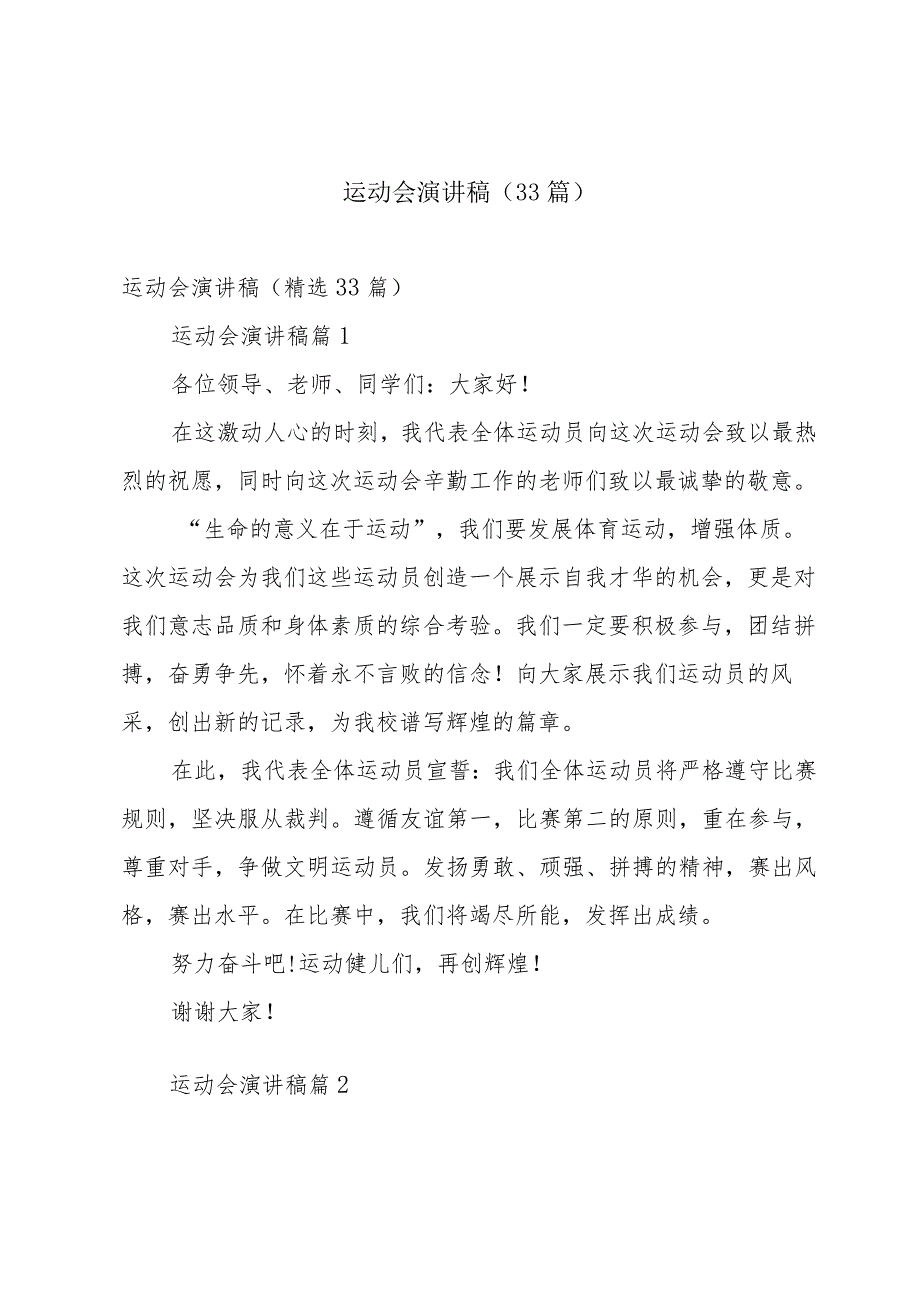 运动会演讲稿（33 篇）
运动会演讲稿（精选 33 篇）
运动会演讲稿篇 1
各位领导、老师、同学们：大家好！
在这激动人心的时刻，我代表全体运动员向这次运动会致以最热
烈的祝愿，同时向这次运动会辛勤工作的老师们致以最诚挚的敬意。
“生命的意义在于运动”，我们要发展体育运动，增强体质。
这次运动会为我们这些运动员创造一个展示自我才华的机会，更是对
我们意志品质和身体素质的综合考验。我们一定要积极参与，团结拼
搏，奋勇争先，怀着永不言败的信念！向大家展示我们运动员的风
采，创出新的记录，为我校谱写辉煌的篇章。
在此，我代表全体运动员宣誓：我们全体运动员将严格遵守比赛
规则，坚决服从裁判。遵循友谊第一，比赛第二的原则，重在参与，
尊重对手，争做文明运动员。发扬勇敢、顽强、拼搏的精神，赛出风
格，赛出水平。在比赛中，我们将竭尽所能，发挥出成绩。
努力奋斗吧!运动健儿们，再创辉煌！
谢谢大家！
运动会演讲稿篇 2